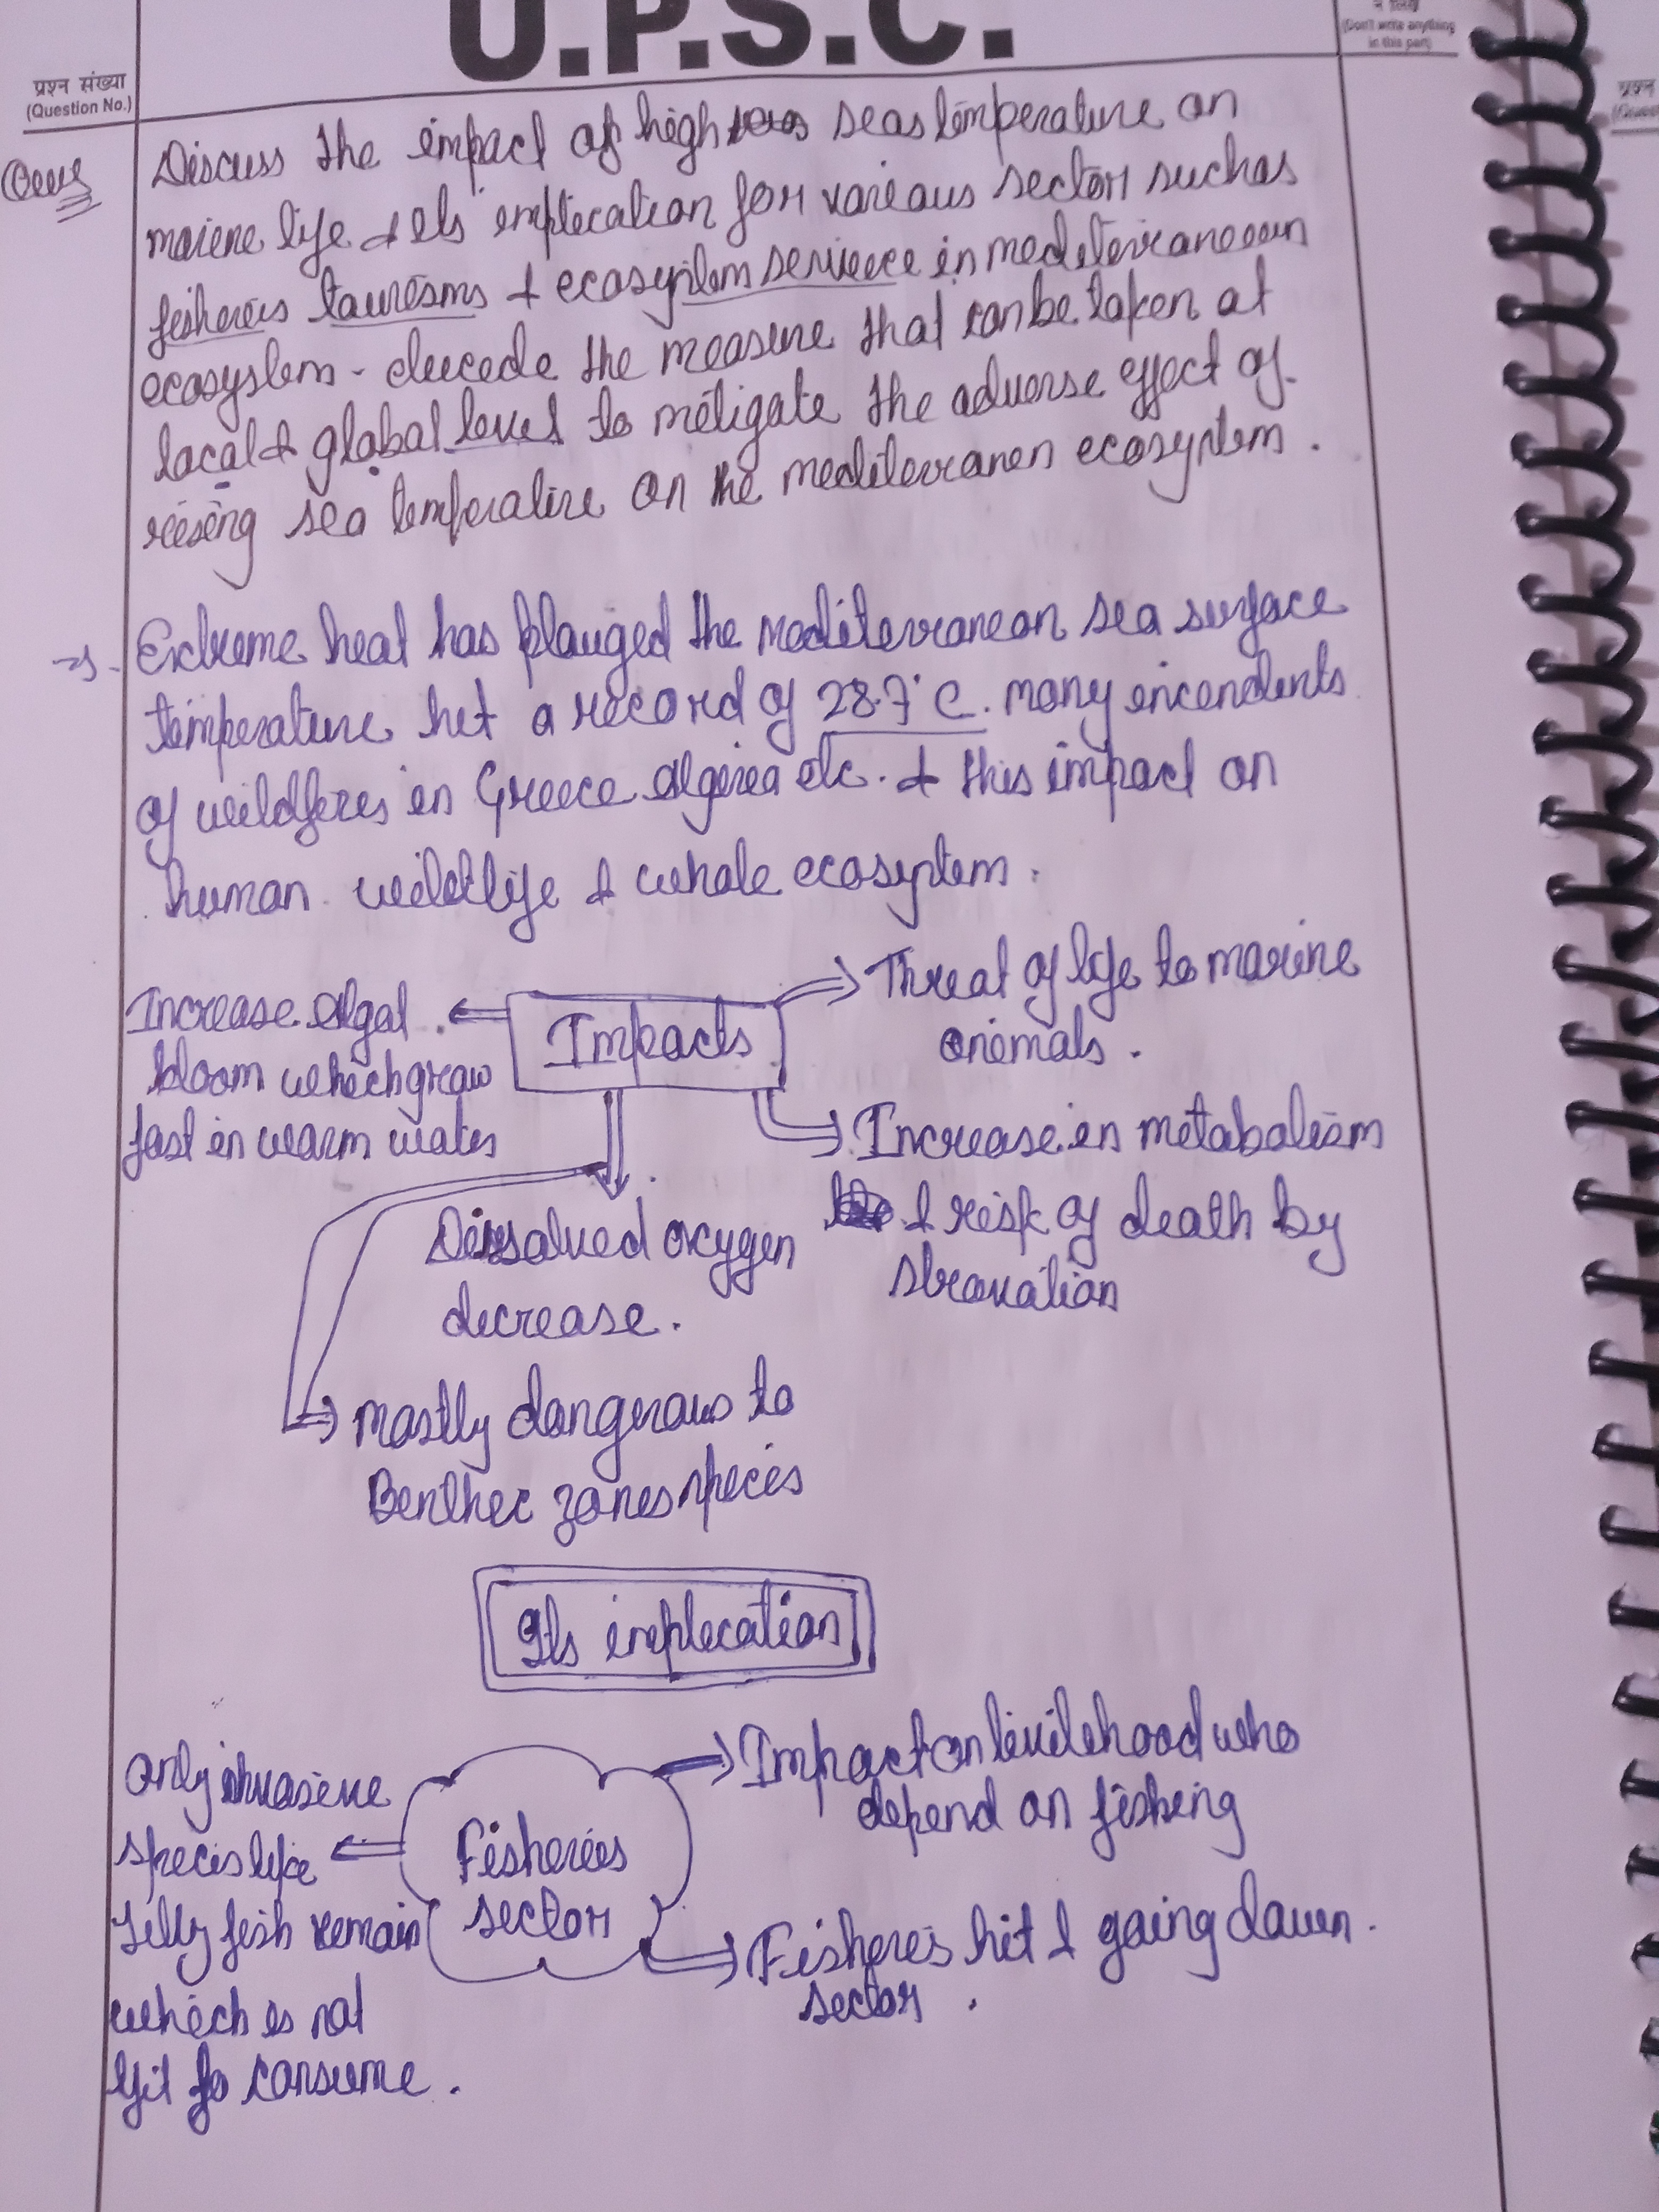 U.P.S.C.
(Don't write anything
in this part)
प्रश्न संख्या
(Question No.)
Ques
Discuss the impact of high seas temperature on
marine life & its implication for various sector such as
fisheries tourisms & ecosystem serivece in mediterranean
ecosystem - the measure that can be taken at
local & global level to mitigate the adverse effect of
riseing sea temperature on the mediterranen ecosystem.
→ Extreme heat has plauged the mediterranean sea surface
temperature hit a record of 28.7°C. many
of wildfires in Greece Algeria etc. & this impact on
human wildlife & whole ecosystem.
Impacts
Threat of life to marine
animals.
Increase Algal
bloom which grow
fast in warm water
Increase in metabolism
& risk of death by
Dissolved oxygen
decrease.
mostly dangerous to
Benthic zones species
Its implication
Fisheries
sector
Impact on livilihood who
depend on fishing
only invasive
species like
Jelly fish remain
which is not
fit fo consume.
Fisheries hit & going down.
sector